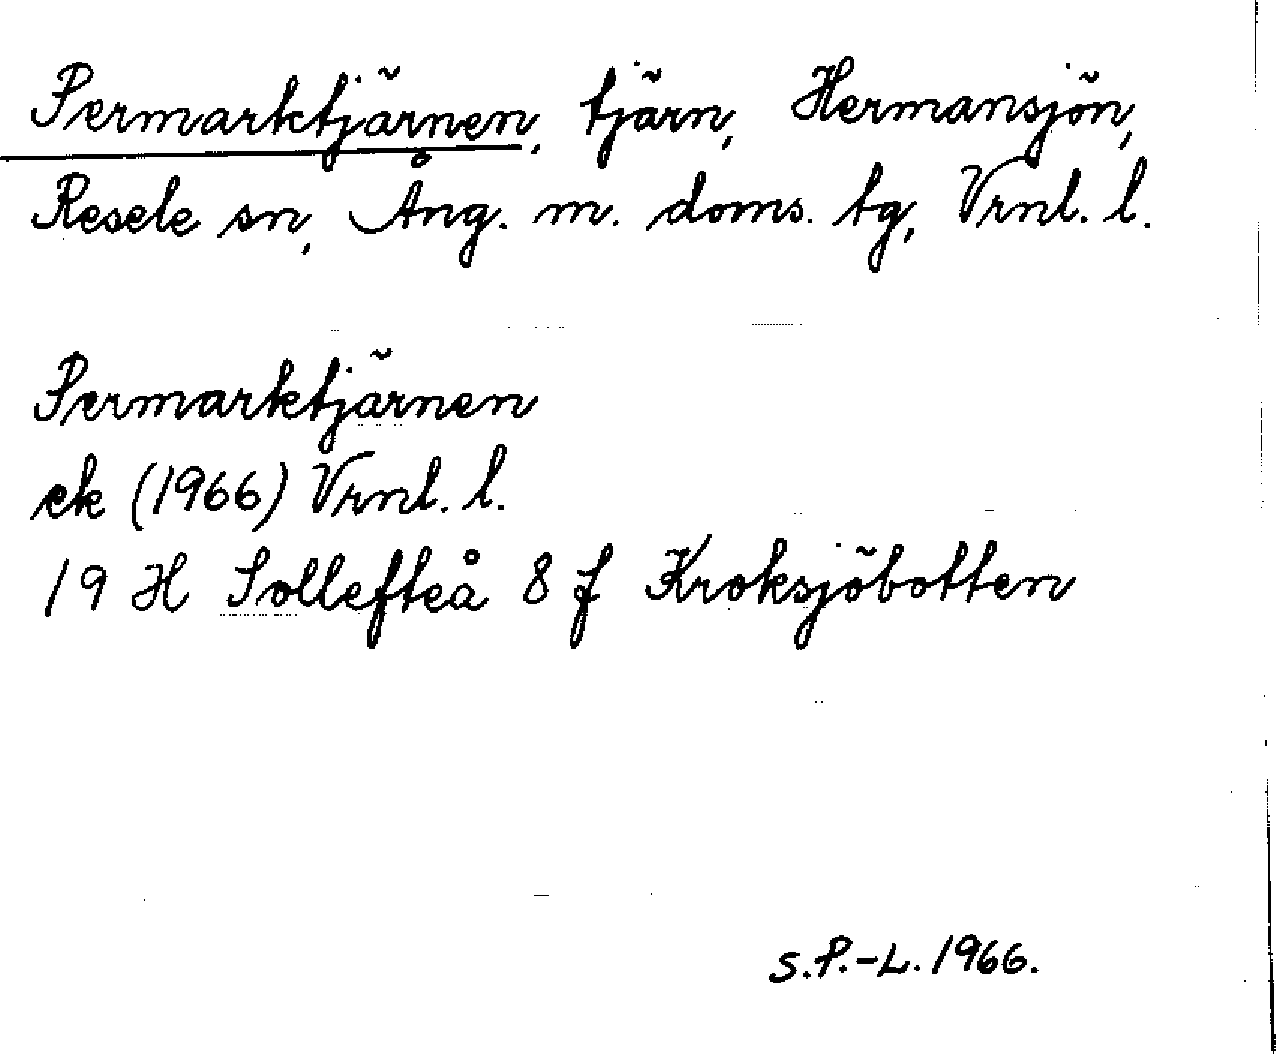 Permarktjärnen, tjärn, Hermansjön,
Resele sn, Ång. m. doms. tg, Vrnl. l.
Permarktjärnen
ek (1966) Vrnl. l.
19 H Sollefteå 8 f Kroksjöbotten
S.P.-L. 1966.